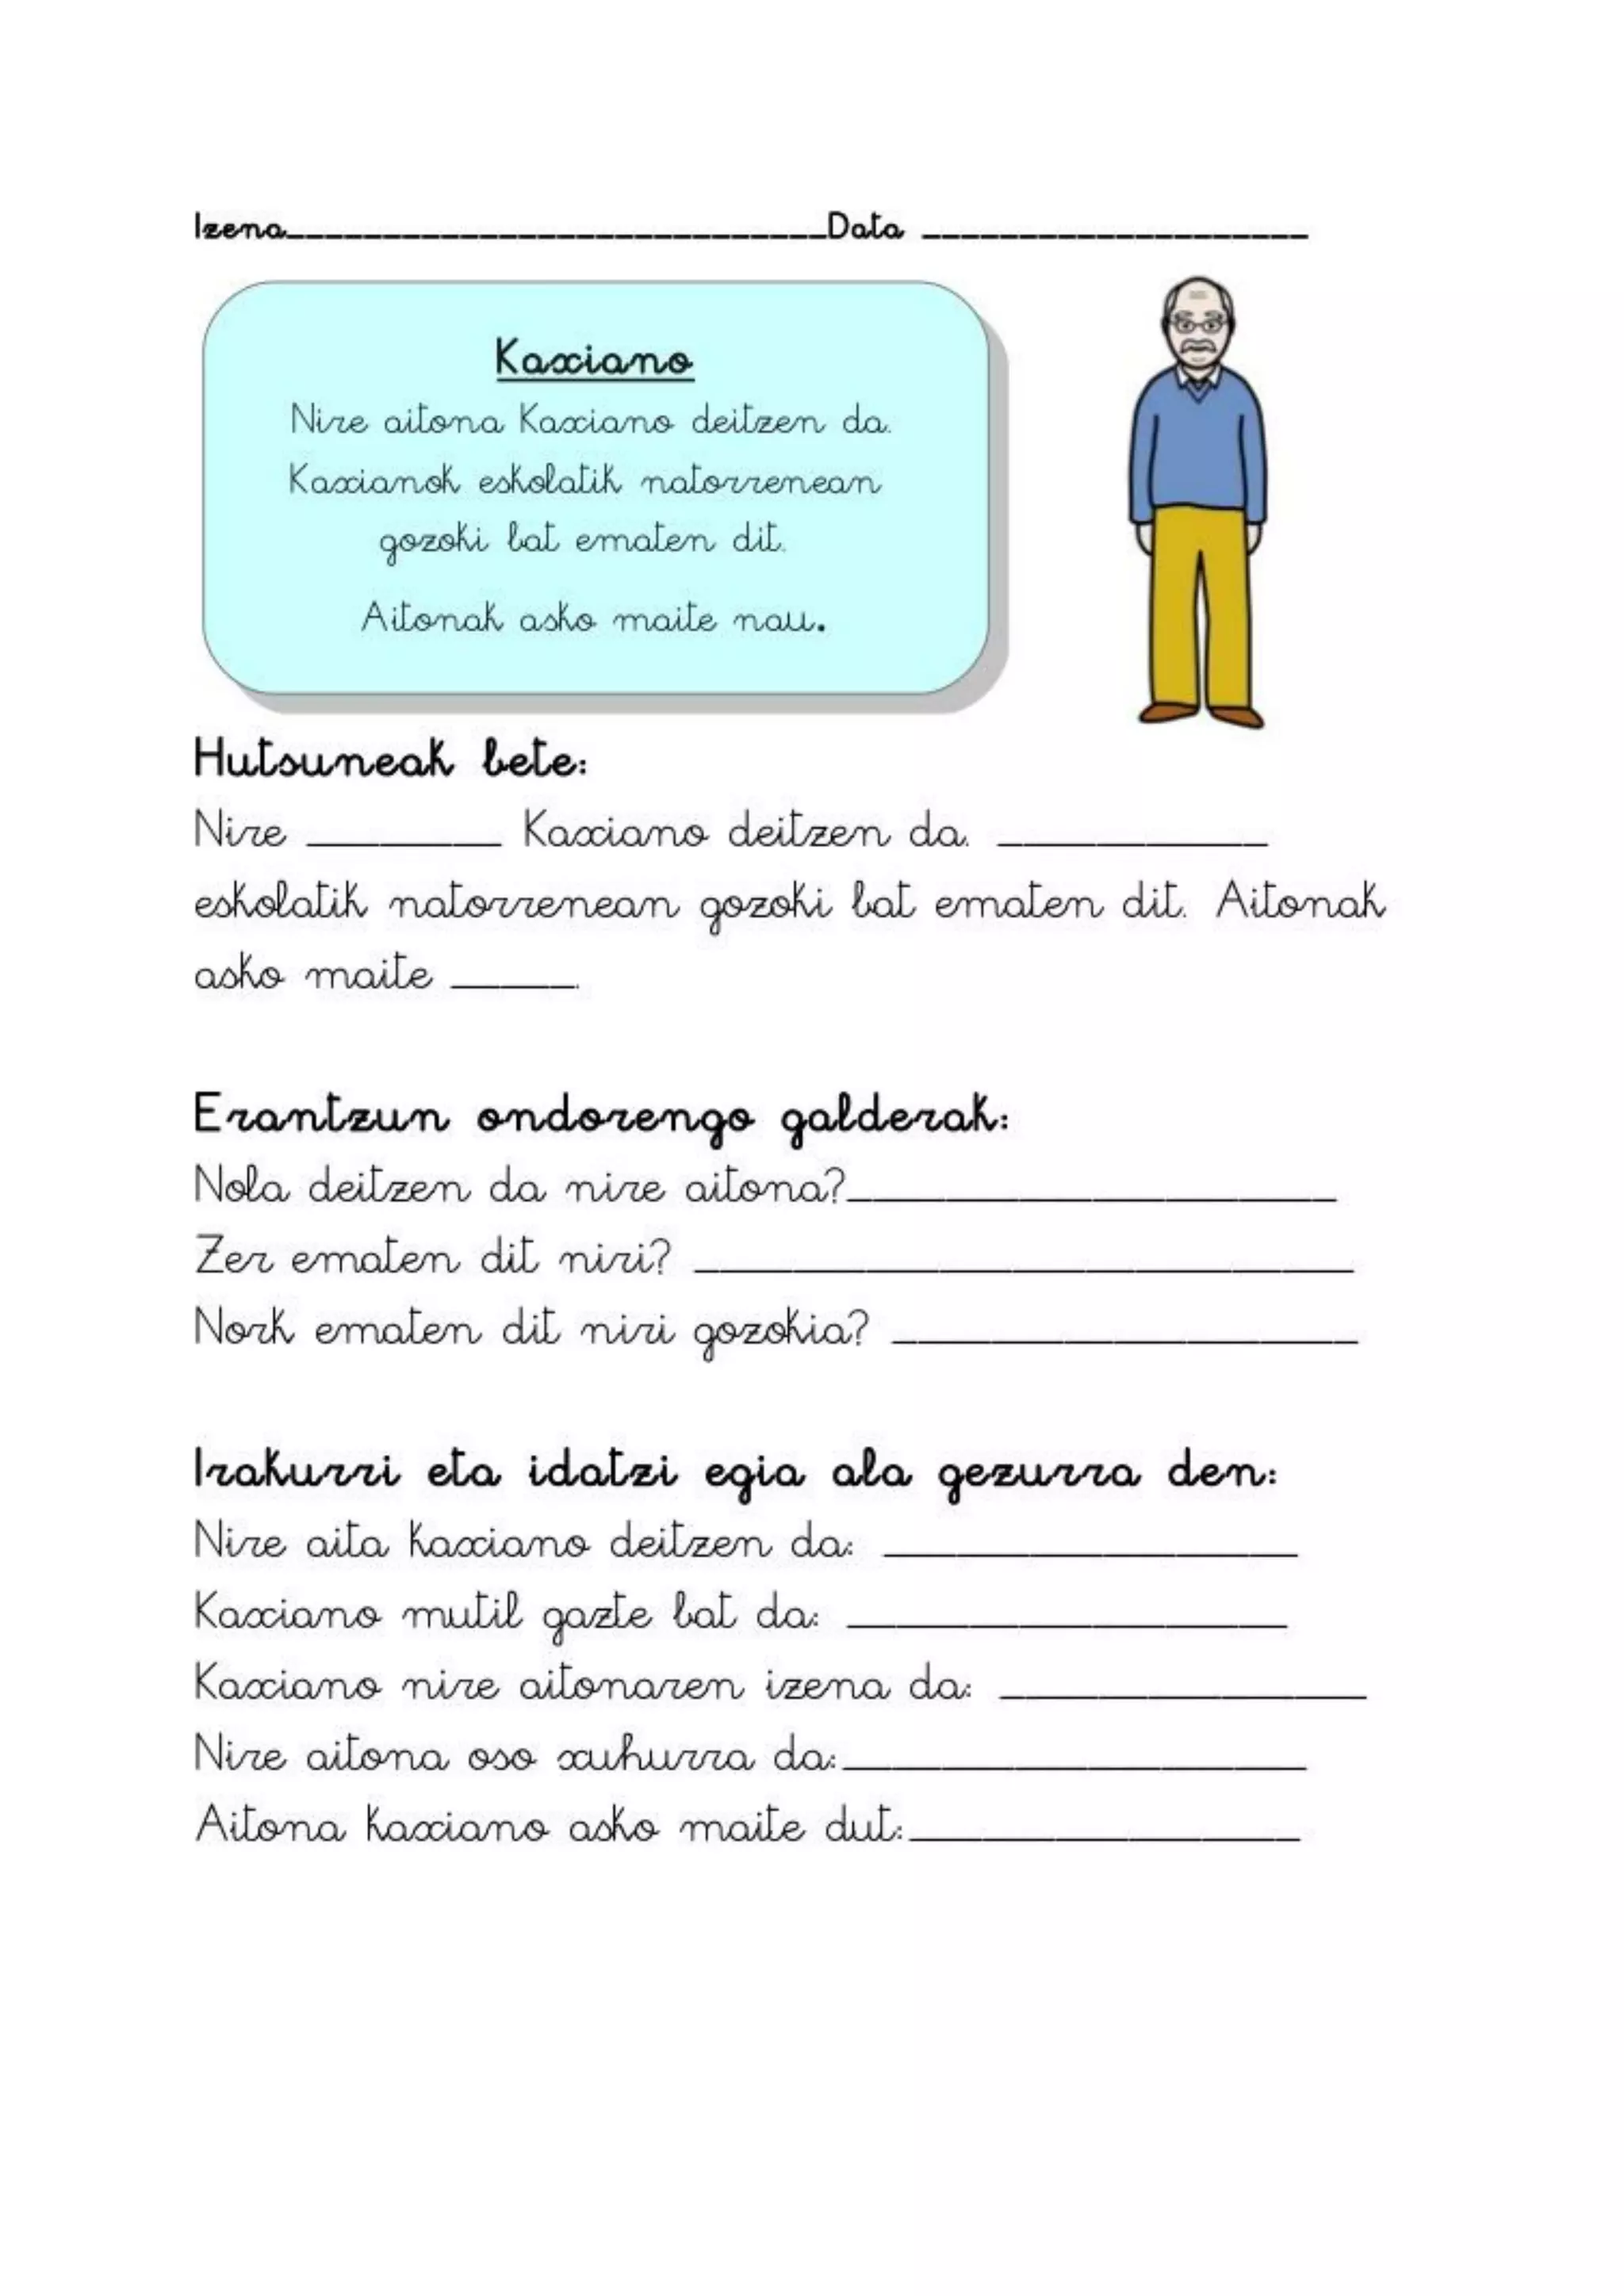 Izena____________________________Data ____________________
Kaxiano
Nire aitona Kaxiano deitzen da.
Kaxianok eskolatik natorrenean
gozoki bat ematen dit.
Aitonak asko maite nau.
Hutsuneak bete:
Nire ________ Kaxiano deitzen da. ___________
eskolatik natorrenean gozoki bat ematen dit. Aitonak
asko maite _____.
Erantzun ondorengo galderak:
Nola deitzen da nire aitona?____________________
Zer ematen dit niri? ___________________________
Nork ematen dit niri gozokia? ___________________
Irakurri eta idatzi egia ala gezurra den:
Nire aita kaxiano deitzen da: _________________
Kaxiano mutil gazte bat da: __________________
Kaxiano nire aitonaren izena da: _______________
Nire aitona oso xuhurra da:___________________
Aitona kaxiano asko maite dut:________________